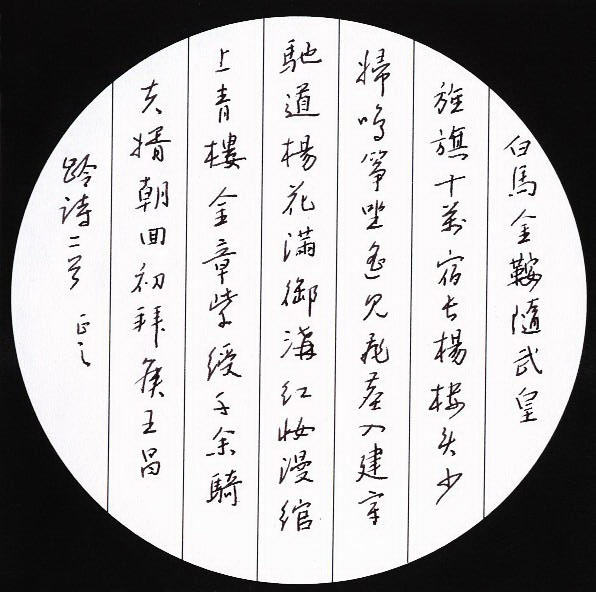 白馬金鞍隨武皇
旌旗十萬宿长楊楼头少
婦鳴箏坐遙見飛塵入建章
馳道楊花滿御溝紅妝漫綰
上青樓金章紫綬千余騎
夫婿朝回初拜侯王昌
齡詩二首 正之